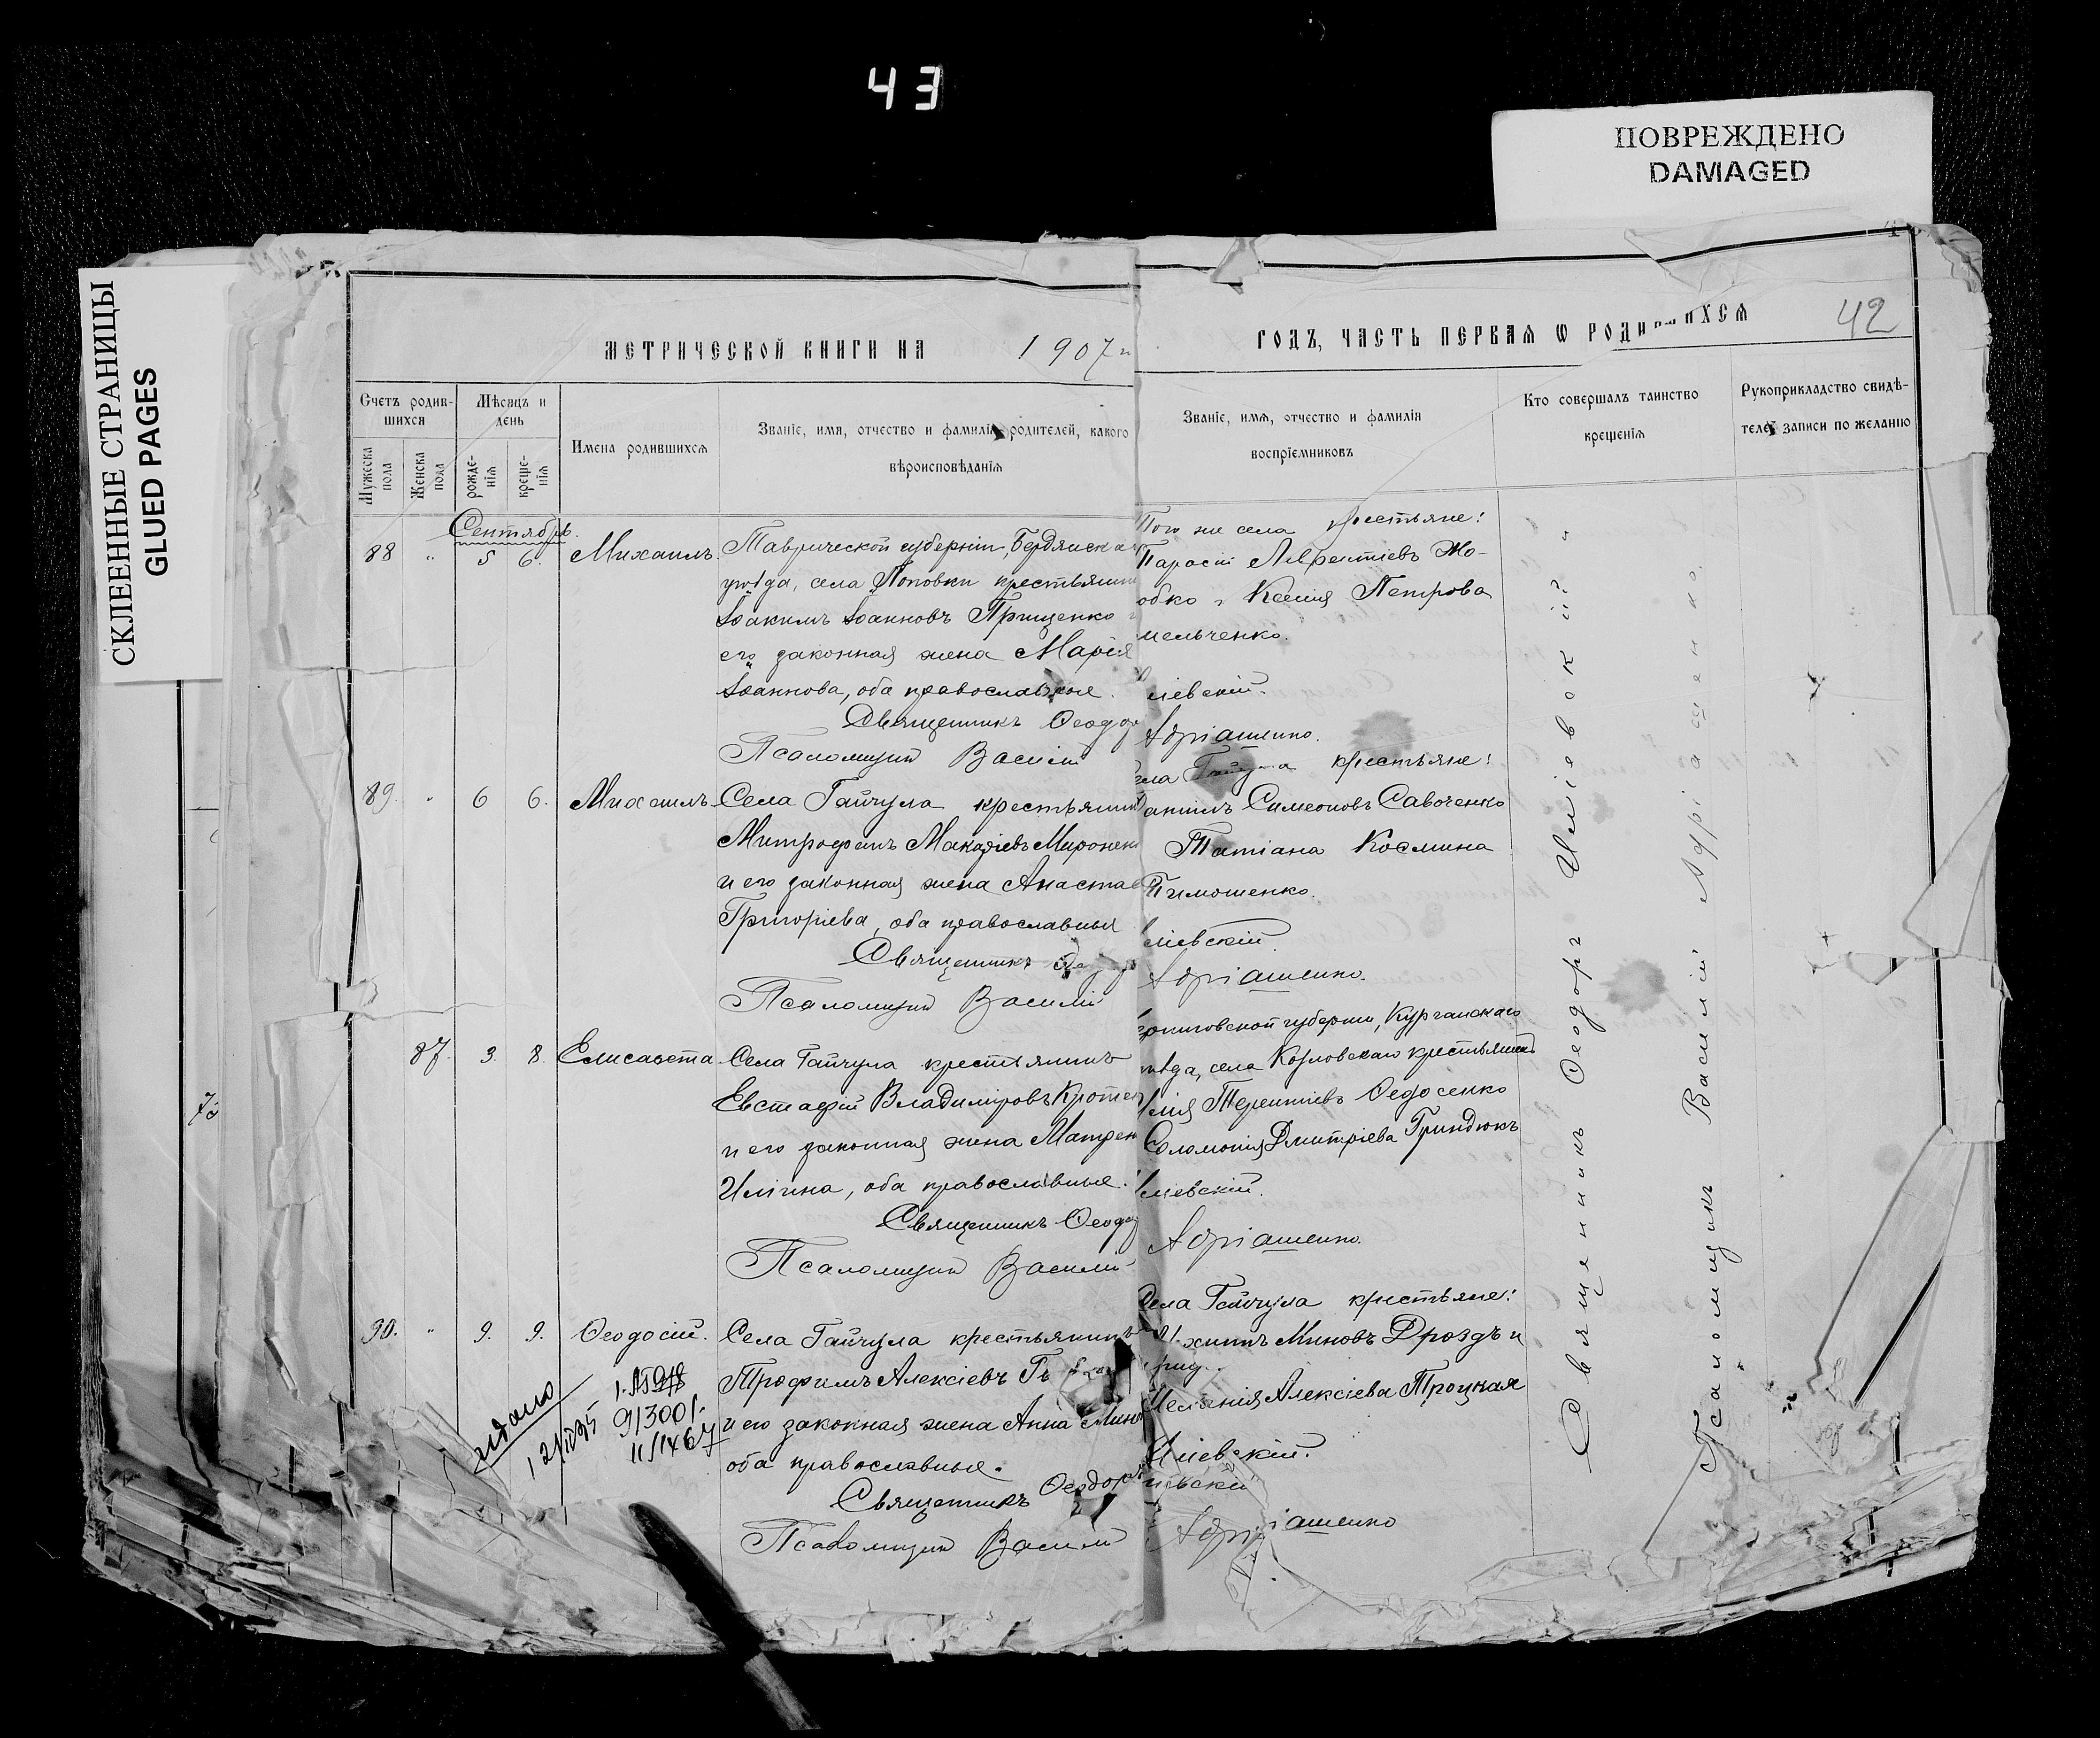 43
ПОВРЕЖДЕНО
DAMAGED
СКЛЕЕННЫЕ СТРАНИЦЫ
GLUED PAGES
МЕТРИЧЕСКОЙ КНИГИ НА 1907
ГОДЪ, ЧАСТЬ ПЕРВАЯ Ѡ РОДИВШИХСЯ
42
Счетъ родив-
шихся
Мужеска
пола
Женска
пола
Мѣсяцъ и
день
рожде-
нія
креще-
нія
Имена родившихся
Званіе, имя, отчество и фамилія родителей, какого
вѣроисповѣданія
Званіе, имя, отчество и фамилія
воспріемниковъ
Кто совершалъ таинство
крещенія
Рукоприкладство свидѣ-
телей записи по желанію
Сентябрь.
88 " 5 6. Михаилъ.
Таврической губерніи, Бердянска
уѣзда, села Поповки крестьянин
Іоакимъ Іоанновъ Прищенко
его законная жена Марія
Іоаннова, оба православные.
Священникъ Ѳеодо
Псаломщикъ Василій
Того же села крестьяне:
Тарасій Лаврентіевъ Жо-
обко Ксенія Петрова
мельченко.
ліевскій.
Адріашенко.
89. " 6 6. Михаилъ.
Села Гайчула крестьянин
Митрофанъ Макаріевъ Миронен
и его законная жена Анастас
Григоріева, оба православные
Священникъ
Псаломщикъ Василій
ела Гайчула крестьяне:
акимъ Симеоновъ Савоченко
Татіана Косьмина
Тимошенко.
ліевскій.
Адріашенко.
87. 3. 8. Елисавета
Села Гайчула крестьянинъ
Евстафій Владиміровъ Кротен
и его законная жена Матрен
Иліина, оба православные.
Священникъ Ѳеодо
Псаломщикъ Василій
губерніи, Курганскаго
уѣзда, села Козловскаго крестьянинъ
лія Терентіевъ Ѳедосенко
Соломонія Дмитріева Гриндюкъ
ліевскій.
Адріашенко.
90. " 9. 9. Ѳеодосій.
Села Гайчула крестьянинъ
Трофимъ Алексіевъ
и его законная жена Анна Мин
оба православные.
Священникъ Ѳеодоръ
Псаломщикъ Василій
Села Гайчула крестьяне:
Миновъ Дроздъ и
Меланія Алексіева Троцкая
Иліевскій.
Адріашенко
913001.
11/1467
Священникъ Ѳеодоръ Иліевскій
Псаломщикъ Василій Адріашенко.